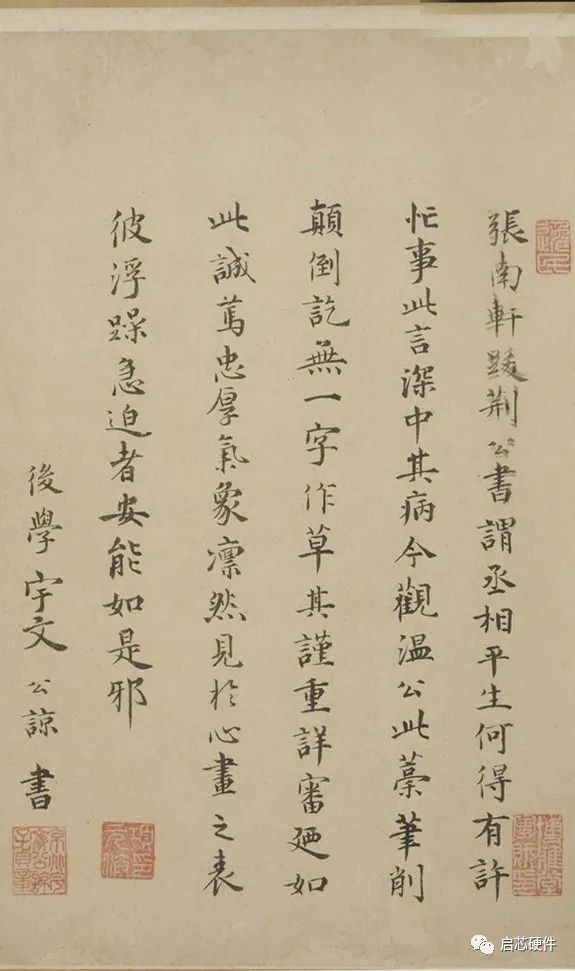 張南軒跋荆公書謂丞相平生何得有許
忙事此言深中其病今觀温公此藁筆削
顛倒訖無一字作草其謹重詳審廼如
此誠篤忠厚氣象凛然見於心畫之表
彼浮躁急迫者安能如是邪
後學宇文公諒書
启芯硬件